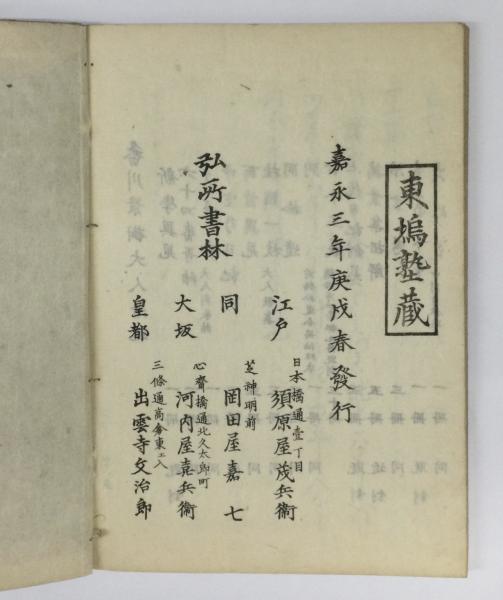 東塢塾藏
嘉永三年庚戌春發行
弘所書林
江戸
日本橋通壹丁目
須原屋茂兵衞
同
芝神明前
岡田屋嘉七
大坂
心齋橋通北久太郎町
河内屋喜兵衞
皇都
三條通高倉東エ入
出雲寺文治郎